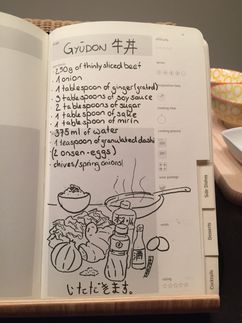 GYŪDON 牛丼
250g of thinly sliced beef
1 onion
1 tablespoon of ginger (grated)
3 tablespoons of soy sauce
2 tablespoons of sugar
1 tablespoon of sake
1 tablespoon of mirin
375 ml of water
1 teaspoon of granulated dashi
(2 onsen-eggs)
chives/spring onions
いただきます。
Side Dishes
Desserts
Cocktails